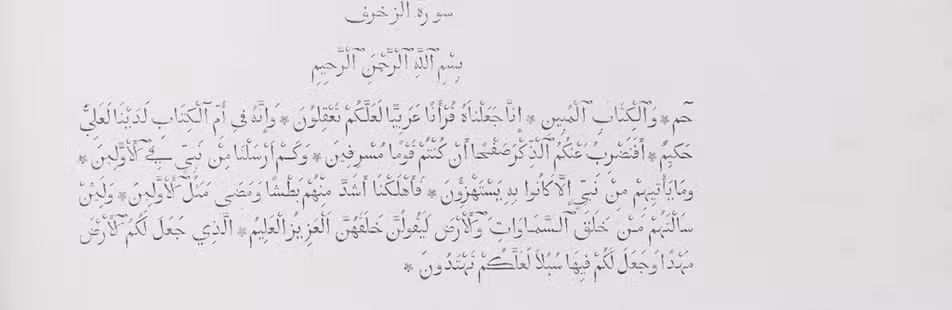 سورة الزخرف
بِسْمِ ٱللَّهِ ٱلرَّحْمَٰنِ ٱلرَّحِيمِ
حٰمٓ * وَٱلْكِتَابِ ٱلْمُبِينِ * إِنَّا جَعَلْنَاهُ قُرْآنًا عَرَبِيًّا لَعَلَّكُمْ تَعْقِلُونَ * وَإِنَّهُ فِي أُمِّ ٱلْكِتَابِ لَدَيْنَا لَعَلِيٌّ
حَكِيمٌ * أَفَنَضْرِبُ عَنْكُمُ ٱلذِّكْرَ صَفْحًا أَنْ كُنْتُمْ قَوْمًا مُسْرِفِينَ * وَكَمْ أَرْسَلْنَا مِنْ نَبِيٍّ فِي ٱلْأَوَّلِينَ *
وَمَا يَأْتِيهِمْ مِنْ نَبِيٍّ إِلَّا كَانُوا بِهِ يَسْتَهْزِؤُنَ * فَأَهْلَكْنَا أَشَدَّ مِنْهُمْ بَطْشًا وَمَضَى مَثَلُ ٱلْأَوَّلِينَ * وَلَئِنْ
سَأَلْتَهُمْ مَنْ خَلَقَ ٱلسَّمَاوَاتِ وَٱلْأَرْضَ لَيَقُولُنَّ خَلَقَهُنَّ ٱلْعَزِيزُ ٱلْعَلِيمُ * ٱلَّذِي جَعَلَ لَكُمُ ٱلْأَرْضَ
مَهْدًا وَجَعَلَ لَكُمْ فِيهَا سُبُلًا لَعَلَّكُمْ تَهْتَدُونَ *